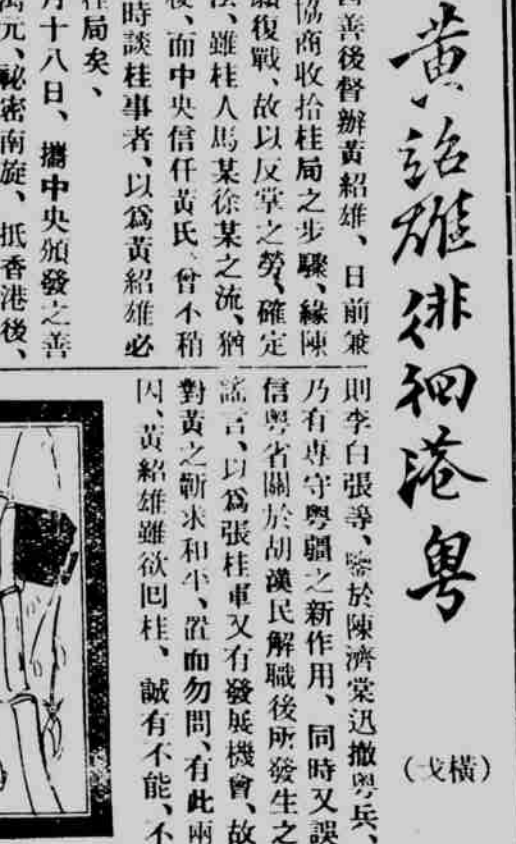 黃紹雄徘徊港粵
(橫戈)
善後督辦黃紹雄、日前兼
協商收拾桂局之步驟、緣陳
復戰、故以反掌之勞、確定
雖桂人馬某徐某之流、猶
而中央信任黃氏、曾不稍
時談桂事者、以爲黃紹雄必
桂局矣、
月十八日、攜中央頒發之善
萬元、祕密南旋、抵香港後、
則李白張等、鑒於陳濟棠迅撤粵兵、
乃有專守粵疆之新作用、同時又誤
信粵省關於胡漢民解職後所發生之
謠言、以爲張桂軍又有發展機會、故
對黃之蘄求和平、置而勿問、有此兩
因、黃紹雄雖欲回桂、誠有不能、不